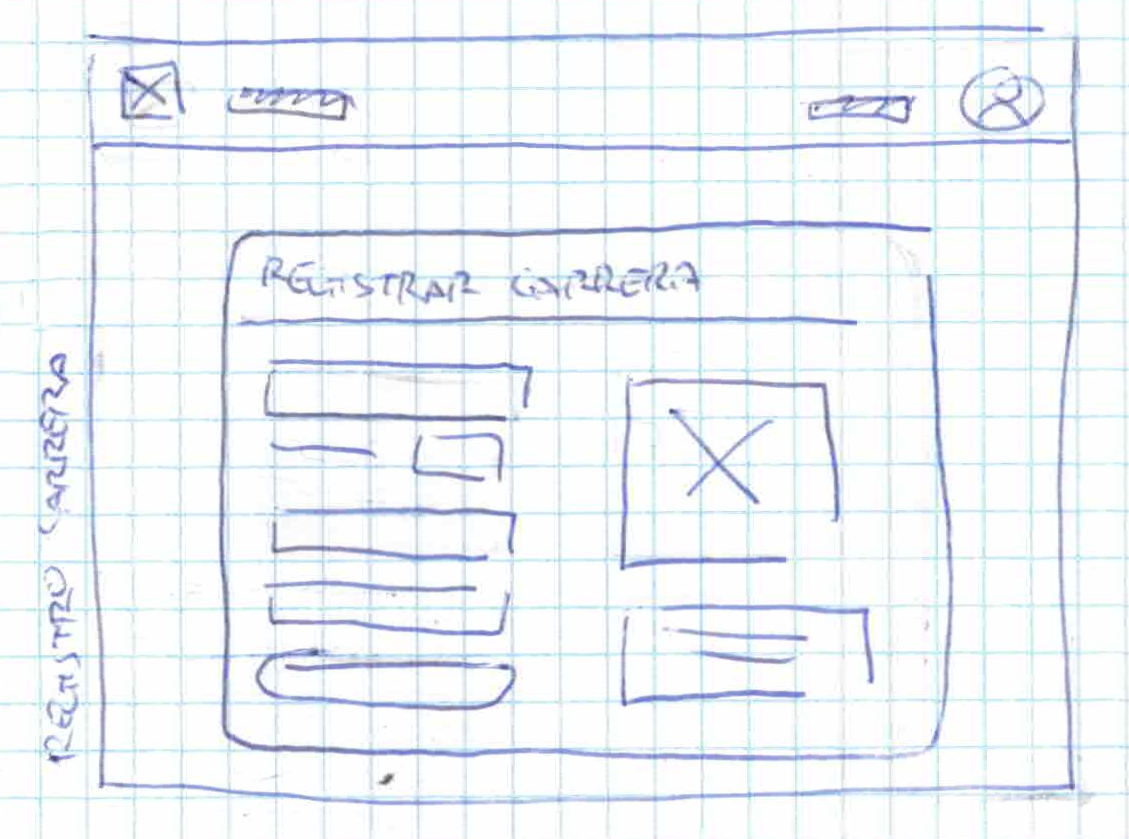 REGISTRAR CARRERA
REGISTRO CARRERA